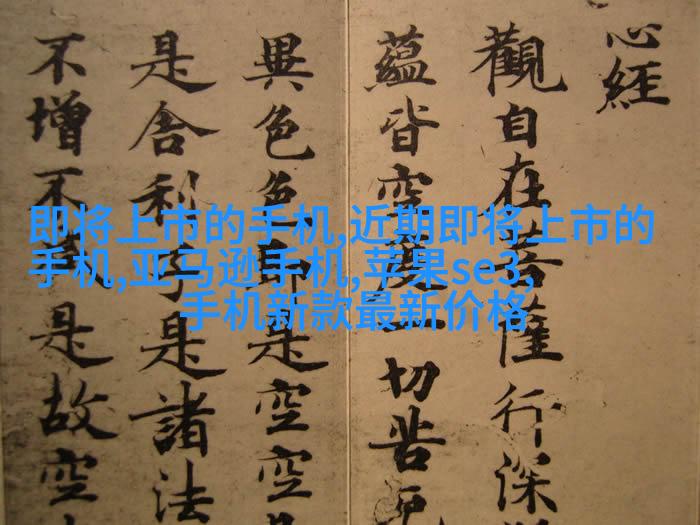 即将上市的手机,近期即将上市的
手机,亚马逊手机,苹果se3,
手机新款最新价格
心經
觀自在菩薩行深
蘊皆空度一切苦厄
異色色即是空空
是舍利子是諸法
不增不減是故空